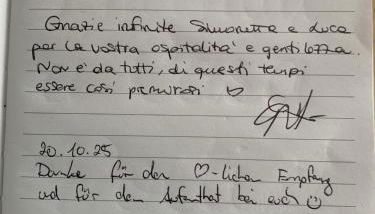 Grazie infinite Simonetta e Luca
per la vostra ospitalità e gentilezza.
Non è da tutti, di questi tempi
essere così premurosi ♡
20.10.25
Danke für den ♡-lichen Empfang
und für den Aufenthalt bei euch ☺